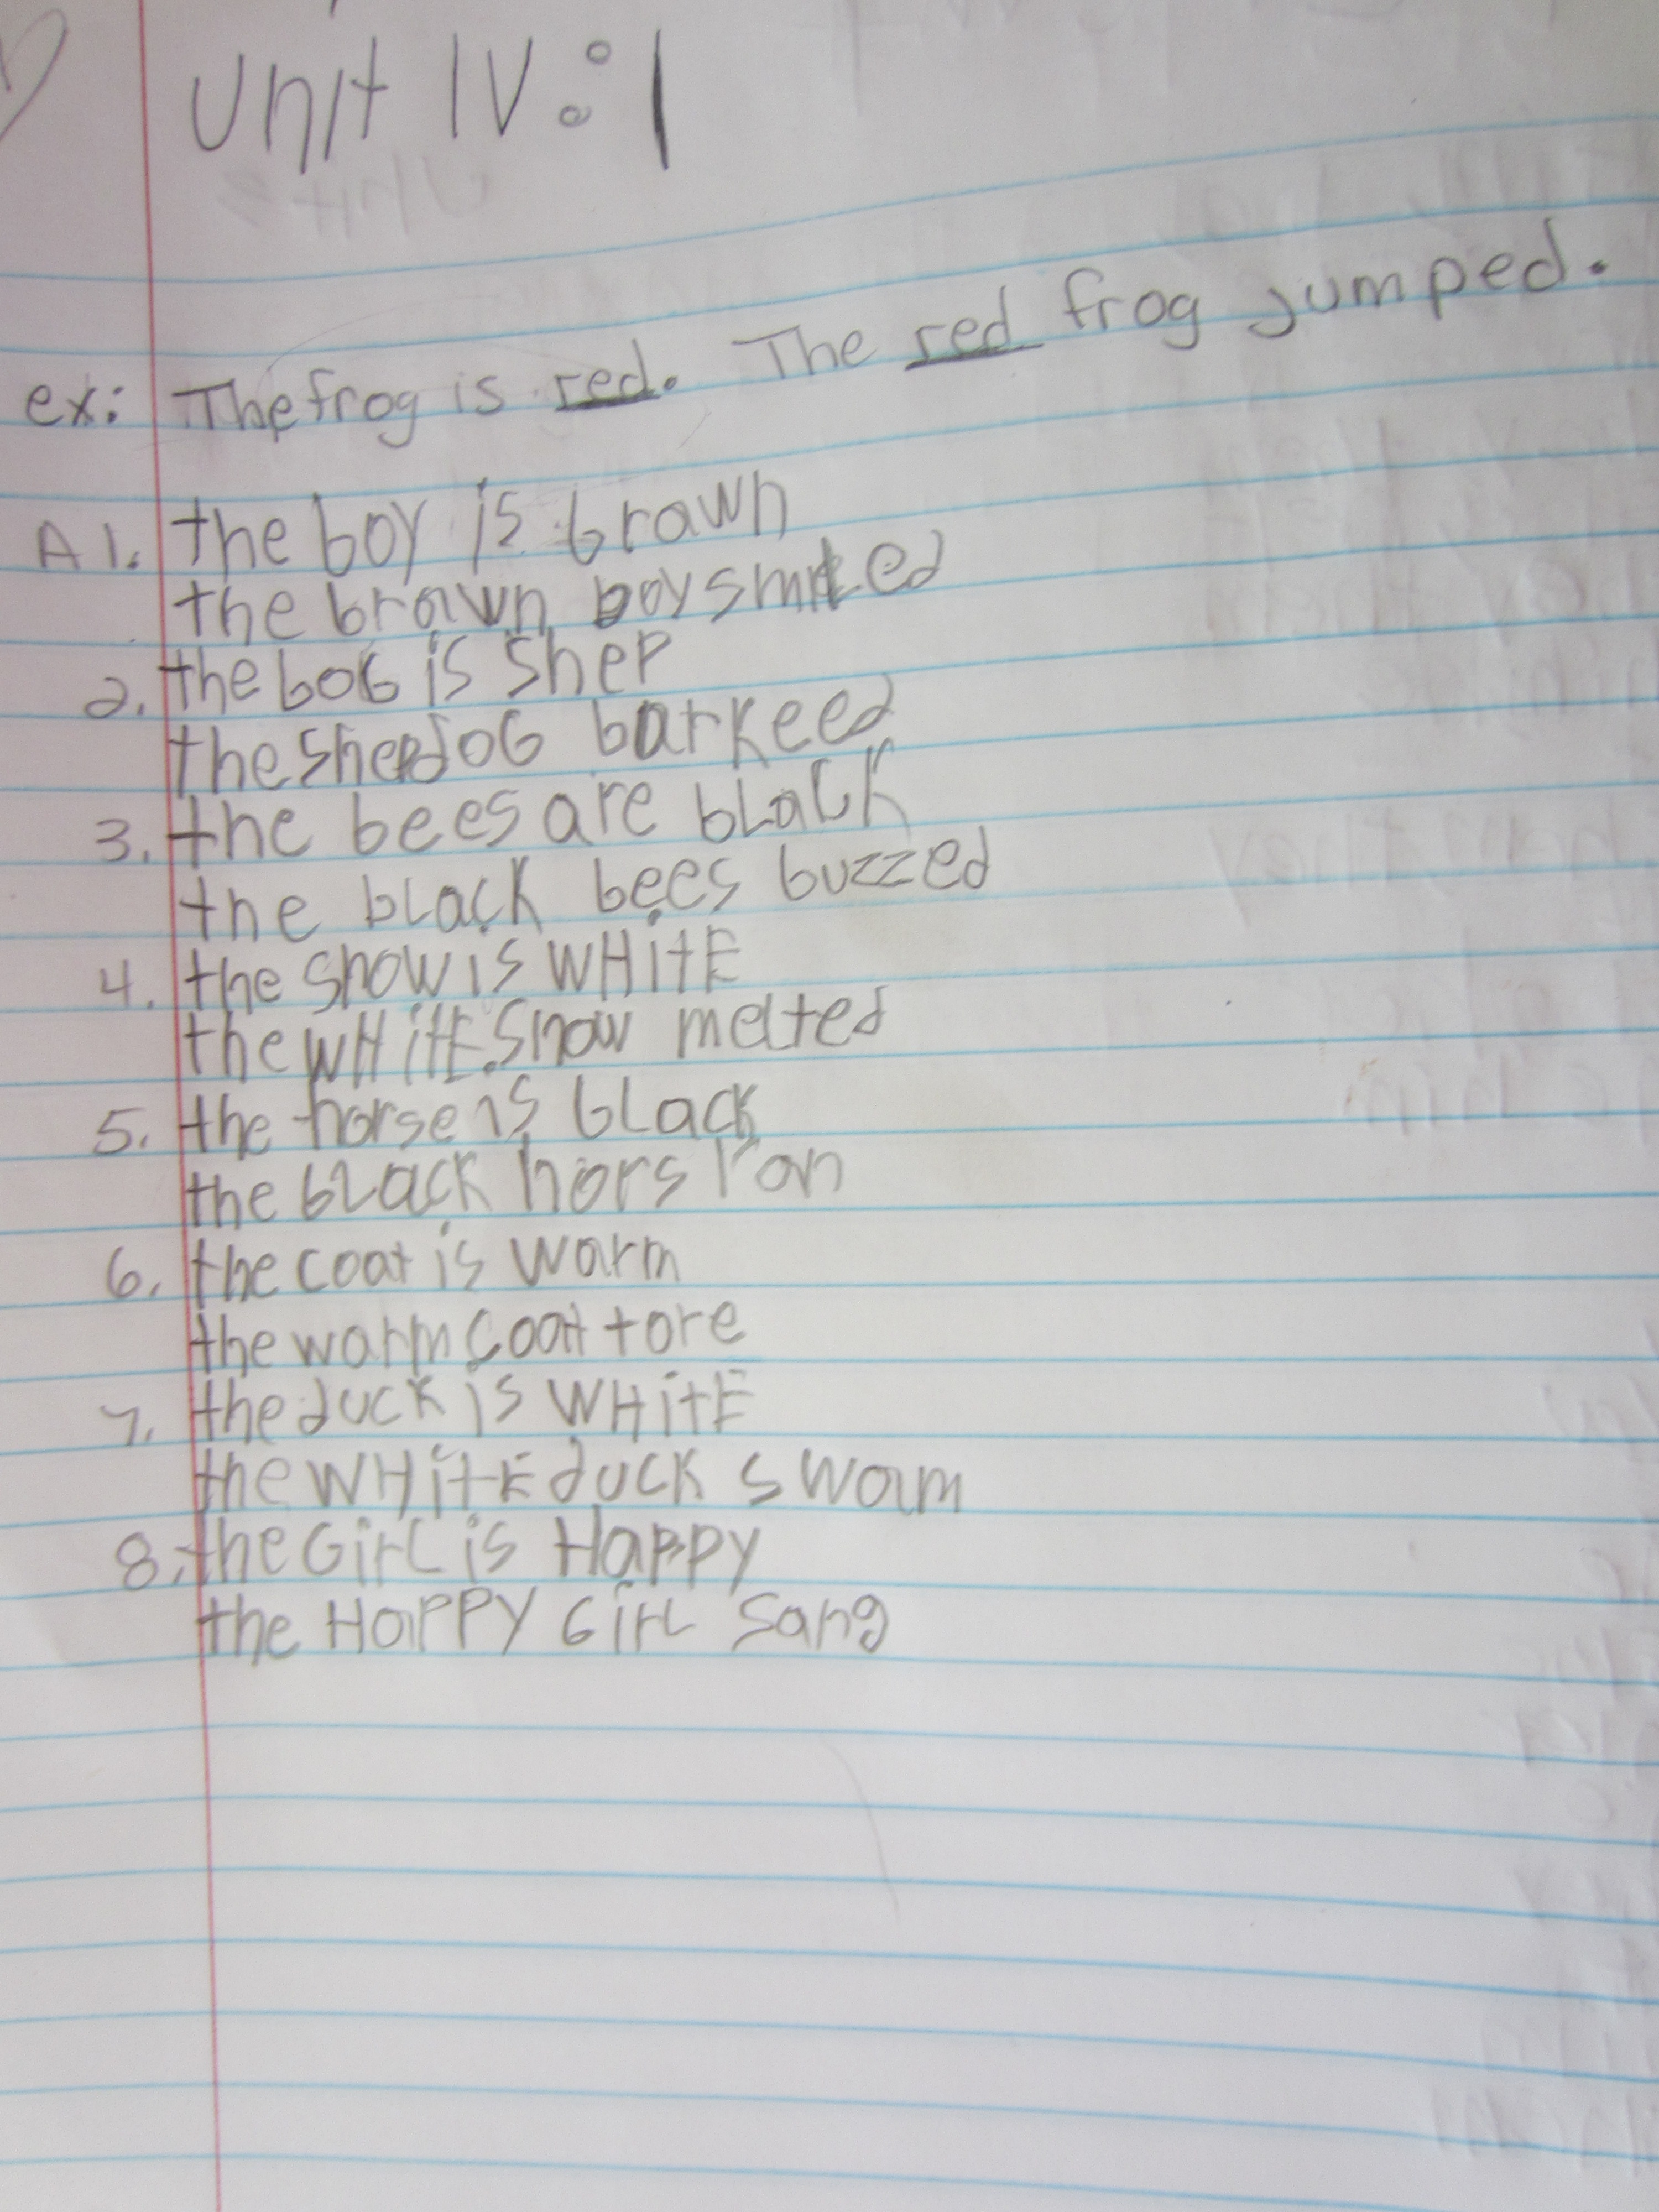 Unit IV: 1
ex: The frog is red. The red frog jumped.
A 1. the boy is brawn
the brawn boy smiled
2. the boG is Shep
the Shep doG barkeed
3. the bees are bLack
the bLack bees buzzed
4. the snow is WHitE
the WHitE snow melted
5. the horse is bLack
the bLack hors ran
6. the coat is warm
the warm coat tore
7. the duck is WHitE
the WHitE duck swam
8. the GirL is Happy
the HaPPY GirL sang